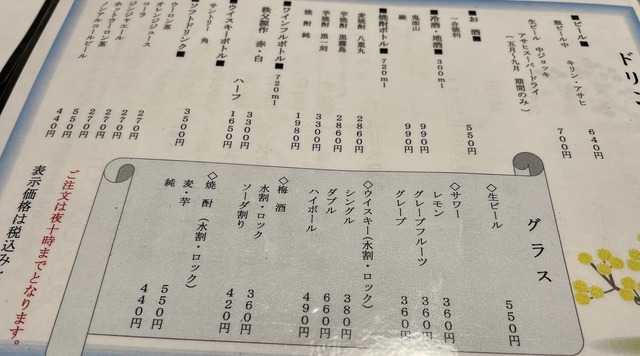 ドリン
■ビール■
瓶ビール中　キリン・アサヒ　６４０円
生ビール　中ジョッキ　７００円
アサヒスーパードライ
（五月～九月　期間のみ）
■お　酒■
一合徳利　５５０円
■冷酒・地酒■３００ｍｌ
鬼面山　９９０円
巖　９９０円
■焼酎ボトル■７２０ｍｌ
麦焼酎　八重丸　２８６０円
芋焼酎　黒霧島　２８６０円
芋焼酎　黒一刻　３３００円
焼酎　純　１９８０円
■ワインフルボトル■７２０ｍｌ
秩父源作　赤・白　３３００円
ハーフ　１６５０円
■ウイスキーボトル■
サントリー　角　３５００円
■ソフトドリンク■
ウーロン茶　２７０円
オレンジジュース　２７０円
コーラ　２７０円
ジンジャエール　２７０円
ホットウーロン茶　５５０円
ノンアルコールビール　４４０円
グラス
◇生ビール　５５０円
◇サワー
レモン　３６０円
グレープフルーツ　３６０円
グレープ　３６０円
◇ウイスキー（水割・ロック）
シングル　３８０円
ダブル　６６０円
ハイボール　４９０円
◇梅　酒
水割・ロック　３６０円
ソーダ割り　４２０円
◇焼　酎（水割・ロック）
麦・芋　５５０円
純　４４０円
ご注文は夜十時までとなります。
表示価格は税込み